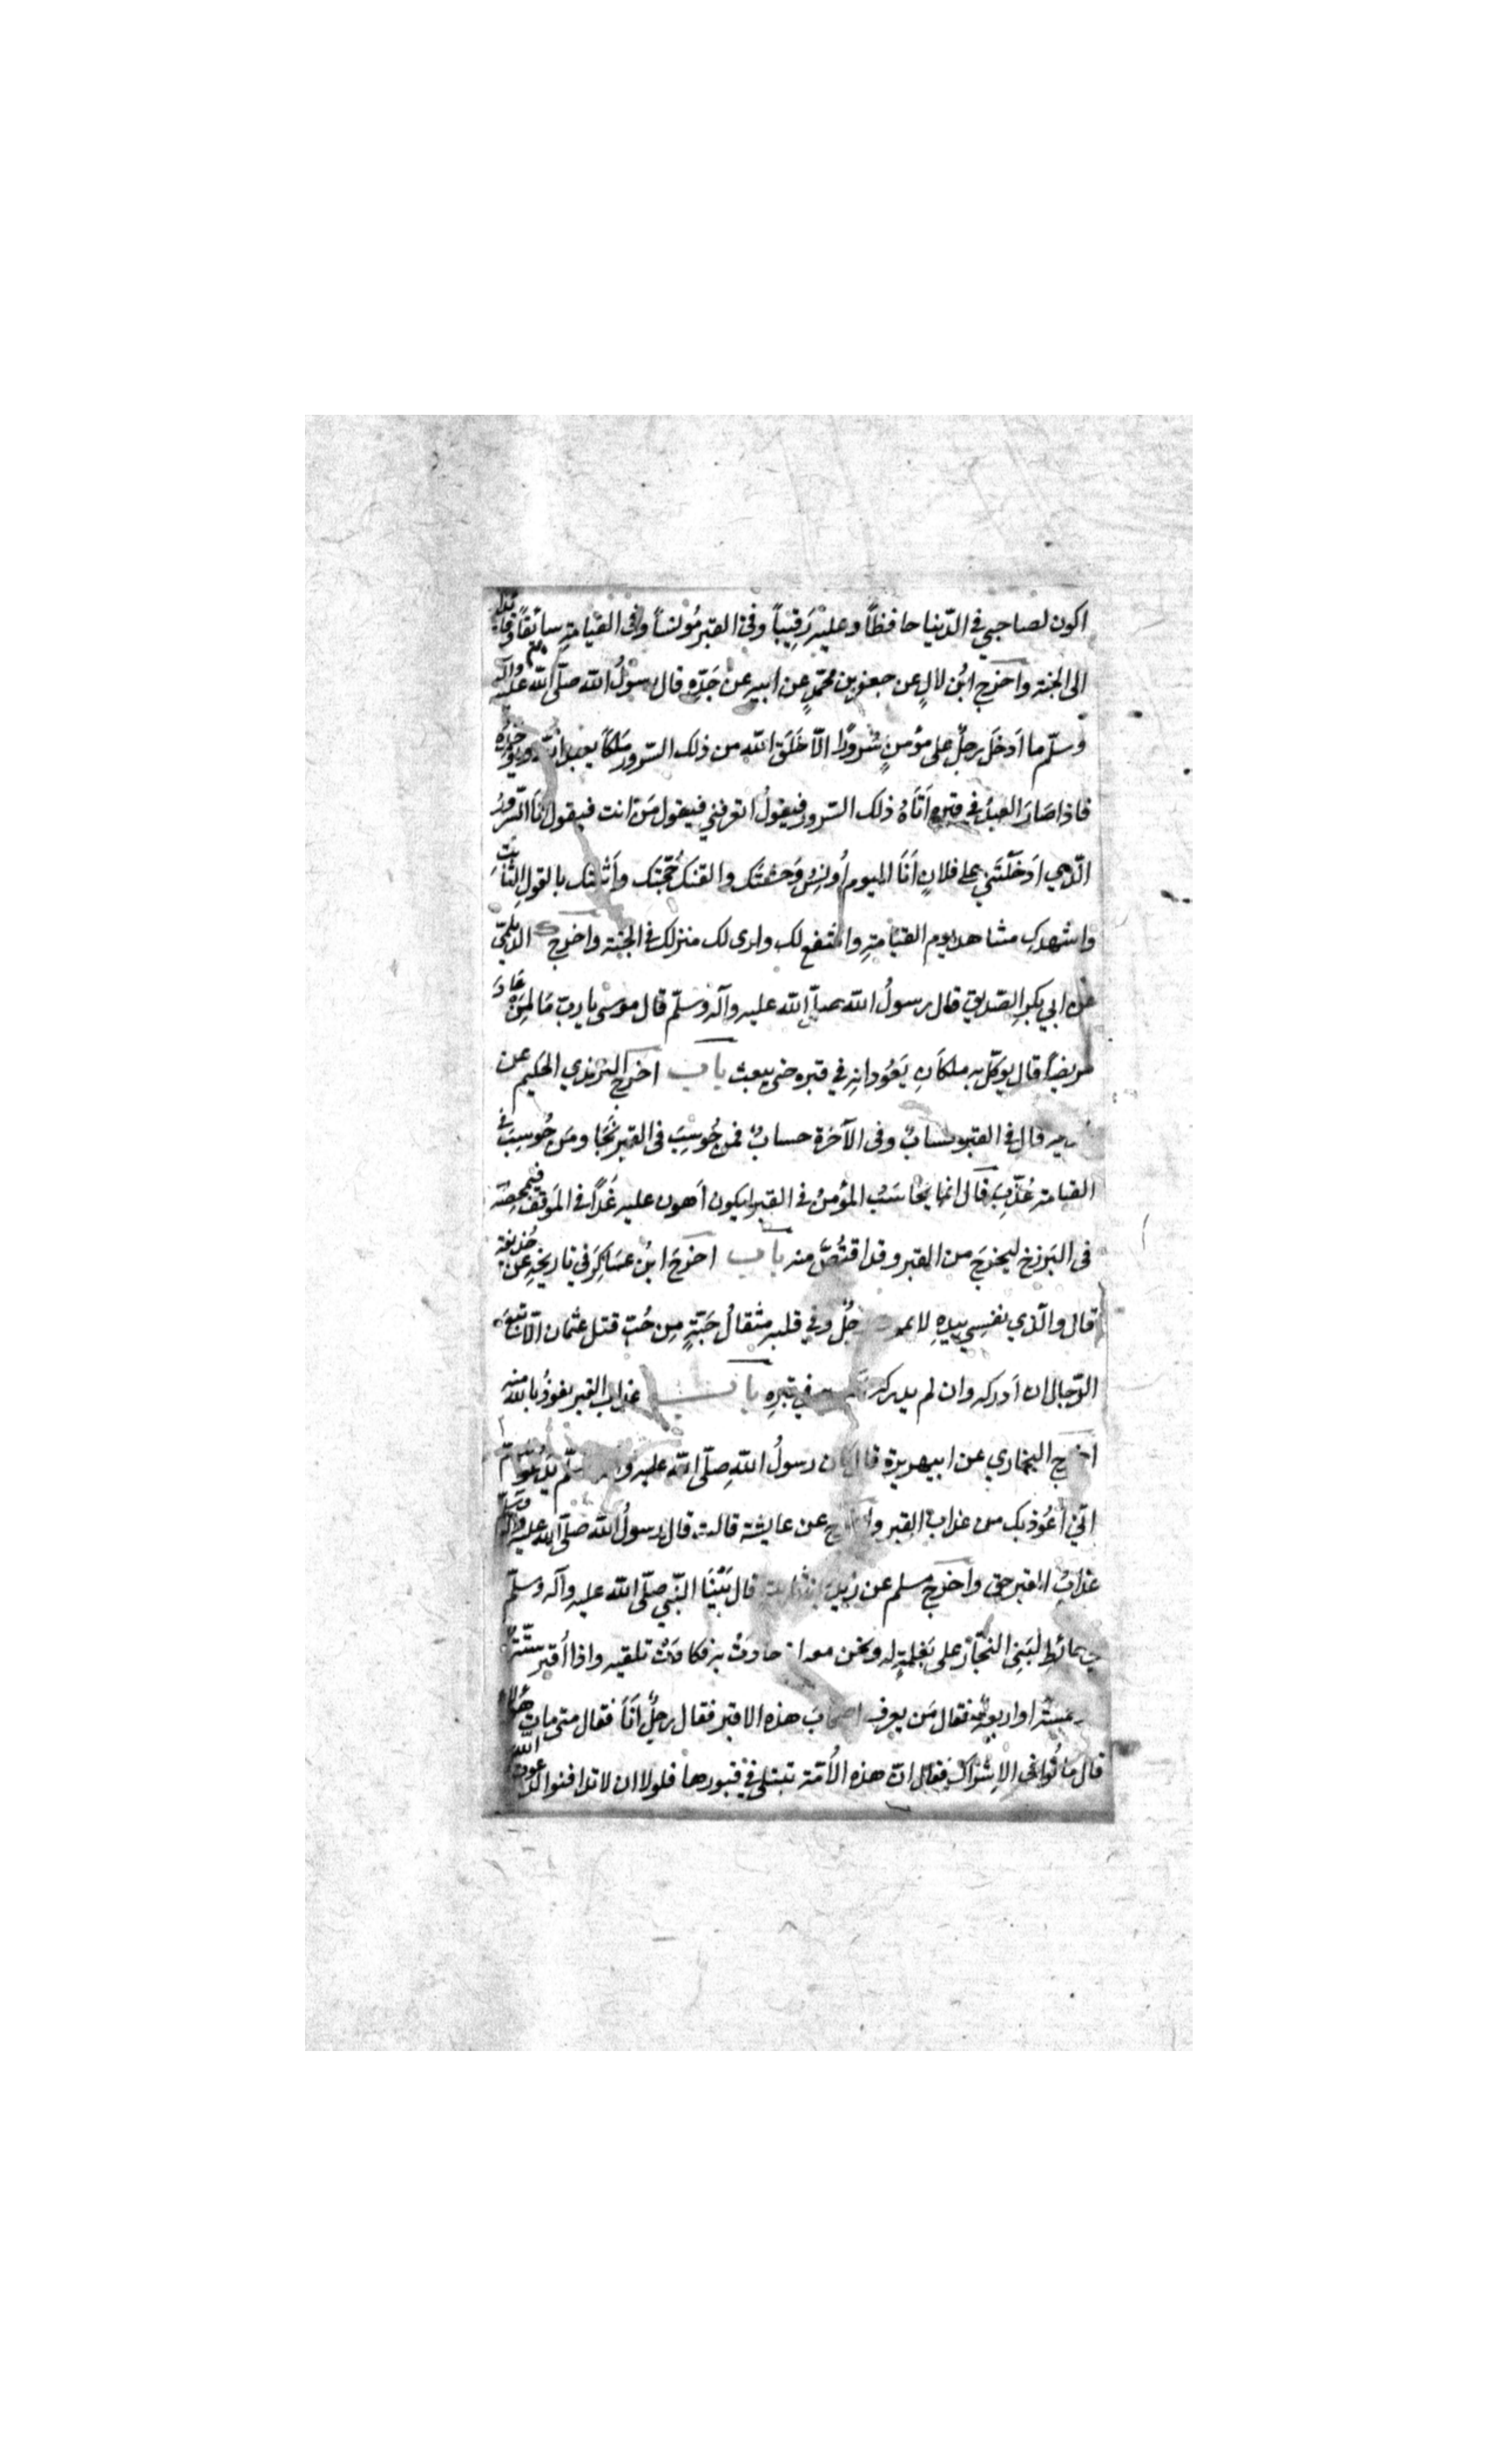 اكون لصاحبي في الدّنيا حافظاً وعليه رَقِيباً وفي القبر مُؤنساً وفي القيامةِ سائقاً وقائداً
الى الجنة واخرج ابن لالٍ عن جعفر بن محمّدٍ عن ابيه عن جَدِّه قال رسولُ الله صلّى الله عليه وآله
وسلّم ما اَدخَلَ رجلٌ على مؤمنٍ سُروراً الّا خَلَقَ الله من ذلك السّرور مَلَكاً يعبد الله ويوحّده
فاذا صَارَ العبدُ في قبره اَتَاهُ ذلك السّرور فيقولُ اتعرفني فيقول مَن انت فيقول اَنا السّرورُ
الّذي اَدخَلْتَني على فلانٍ اَنَا اليوم اُونِسُ وَحشَتَك والقنك حُجّتَك واَثبتك بالقول الثّابتِ
واشهدك مشاهد يوم القيامةِ واشفع لك واری لک منزلک فی الجنة واخرج الدّيلميّ
عن ابي بكرٍ الصّديق قال رسولُ الله صلّى الله عليه وآله وسلّم قال موسى يا ربّ مَا لِمَن عَادَ
مريضاً قال يوكّل به ملكانِ يَعُودانِه في قبره حتى يبعث باب اخرج الترمذي الحكيم عن
قال في القبر حسابٌ وفي الآخرة حسابٌ فمن حُوسِبَ في القبر نَجَا ومَن حُوسِبَ في
القيامة عُذِّبَ قال انما يُحَاسَبُ المؤمنُ في القبر ليكون اَهون عليه غَداً في المَوقف فيمحصه
في البَرزخ ليخرجَ من القبر وقد اقتُصَّ منه باب اخرَجَ ابنُ عَسَاكِرَ في تاريخه عن حُذيفة
قال والّذي نفسِي بيدِهِ لا يموت رجُلٌ وفي قلبه مثقالُ حَبّةٍ مِن حُبّ قتل عثمان الّا تبعَ
الدّجال ان اَدركه وان لم يدركه في قبرِهِ باب عذاب القبر نعوذُ بالله منه
اخرج البخاري عن ابي هريرة قال كان رسولُ اللهِ صلّى الله عليه وآله وسلّم يَدعُو
انّي اَعُوذ بك من عذاب القبر واخرج عن عايشة قالت قال رسولُ الله صلّى الله عليه وآله وسلّم
عذابُ القبر حق واَخرَجَ مسلم عن زيد بن ثابت قال بَيْنَا النّبي صلّى الله عليه وآله وسلّم
في حائطٍ لبَنِي النجّار على بَغلةٍ له ونحن معه اذ حادَتْ به فكادَتْ تلقيه واذا اَقبر ستّةٌ
او خمسة او اربعةٌ فقال مَن يعرف اصحاب هذه الاقبر فقال رجلٌ اَنَا فقال متى مات هؤلاء
قال مَاتُوا في الاِشراك فقال انّ هذه الاُمّة تبتلى في قبورها فلولا ان لا تدافنوا لدعوت الله